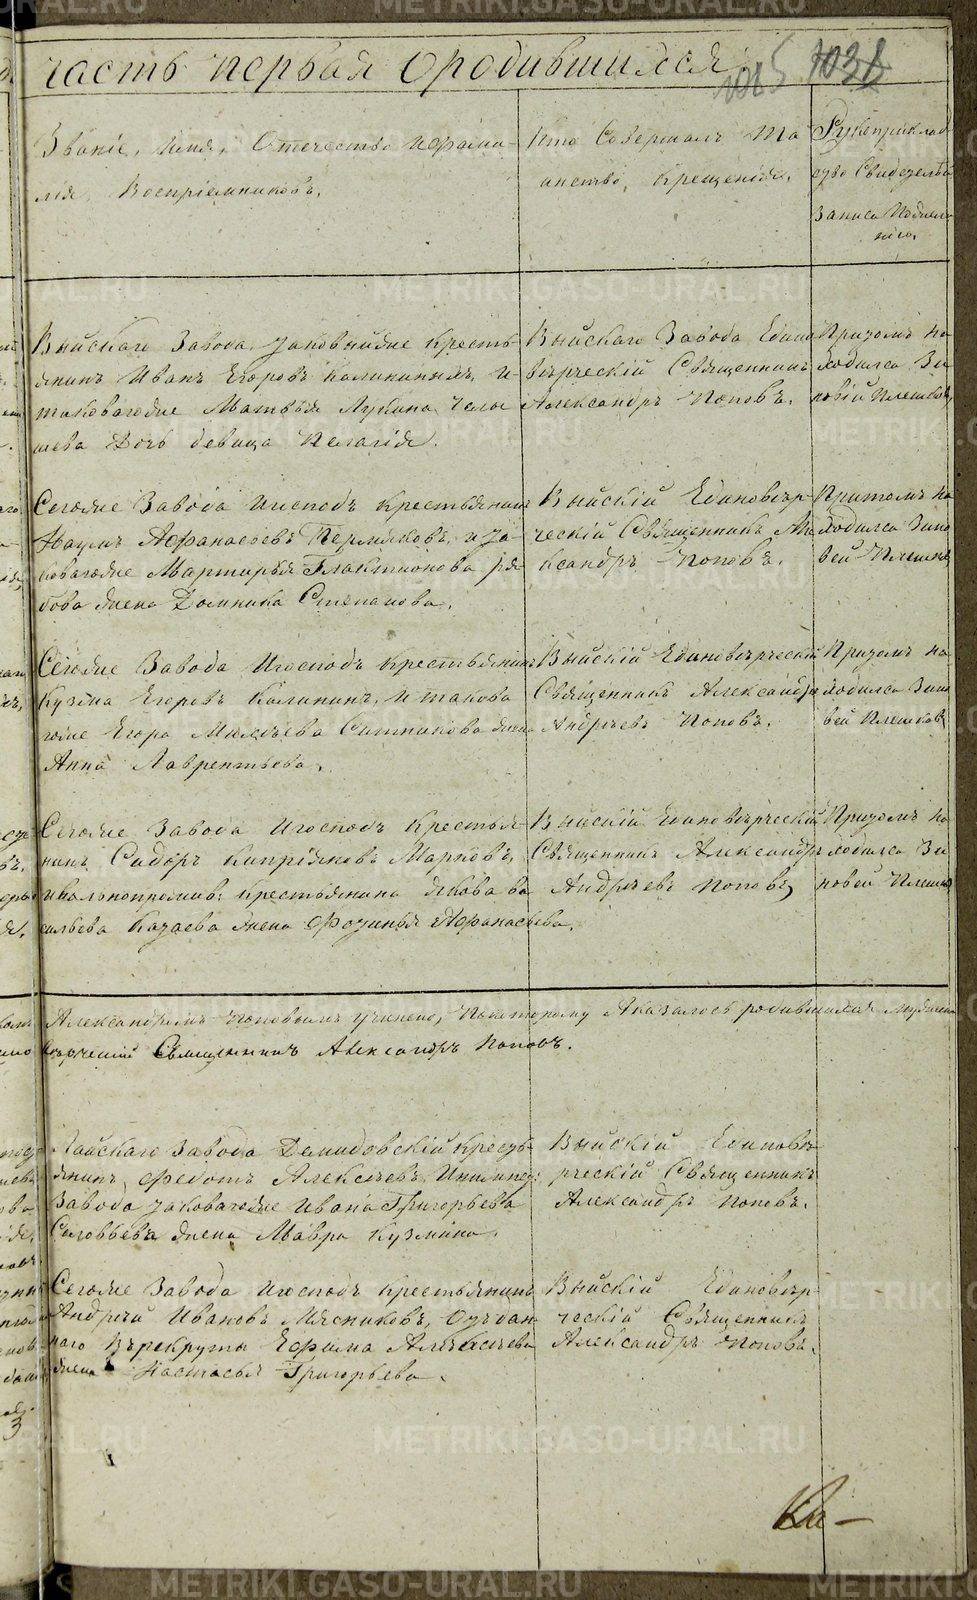 METRIKI.GASO-URAL.RU
часть первая ородившихся
1085 1031
Званіе, Имя, Отечество ифами-
лія, Воспріемниковъ.
Кто Совершалъ Та
инство, Крещенія.
Рукоприклад
ство Свидетелей
Записи
Выйскаго Завода
Иванъ Егоровъ Калининъ, и
Матвѣя Лукина
дочь девица Пелагія.
Выйскаго Завода Едино
вѣрческій Священникъ
Александръ Поповъ.
Притомъ на
ходился Зи
новій Плешковъ
Сегоже Завода Игосподъ крестьянинъ
Наумъ Афанасьевъ Пермяковъ, и за
ковагоже Мартирья Галактионова ря
бова жена Домника Степанова.
Выйскій Единовѣр-
ческій Священникъ Але
ксандръ Поповъ.
Притомъ на
ходился Зино
вей Плешковъ
Сегоже Завода Игосподъ крестьянинъ
Кузма Егоровъ Калининъ, и такова
гоже Егора Ситникова жена
Анна Лаврентьева.
Выйскій Единовѣрческій
Священникъ Александръ
Андреевъ Поповъ.
Притомъ на
ходился Зино
вей Плешковъ
Сегоже Завода Игосподъ Крестья-
нинъ Сидоръ Кипріяновъ Марковъ,
крестьянина Якова Ва
сильева Казаева жена Фотинья Афанасьева.
Выйскій Единовѣрческій
Священникъ Александръ
Андреевъ Поповъ
Притомъ на
ходился Зи
новей Плешков
Александромъ Поповымъ учинено, Покоторому Аказалось родившихся
вѣрческій Священникъ Александръ Поповъ.
Лайскаго Завода Демидовскій кресть
янинъ Федотъ Алексѣевъ
Завода заковагоже Ивана Григорьева
Соловьева жена Мавра Кузмина.
Выйскій Единовѣ
рческій Священникъ
Александръ Поповъ.
Сегоже Завода Игосподъ крестьянинъ
Андрей Ивановъ Мясниковъ, Отъдан
наго Врекруты Ефима
жена Настасья Григорьева.
Выйскій Единовѣр-
ческій Священникъ
Александръ Поповъ.